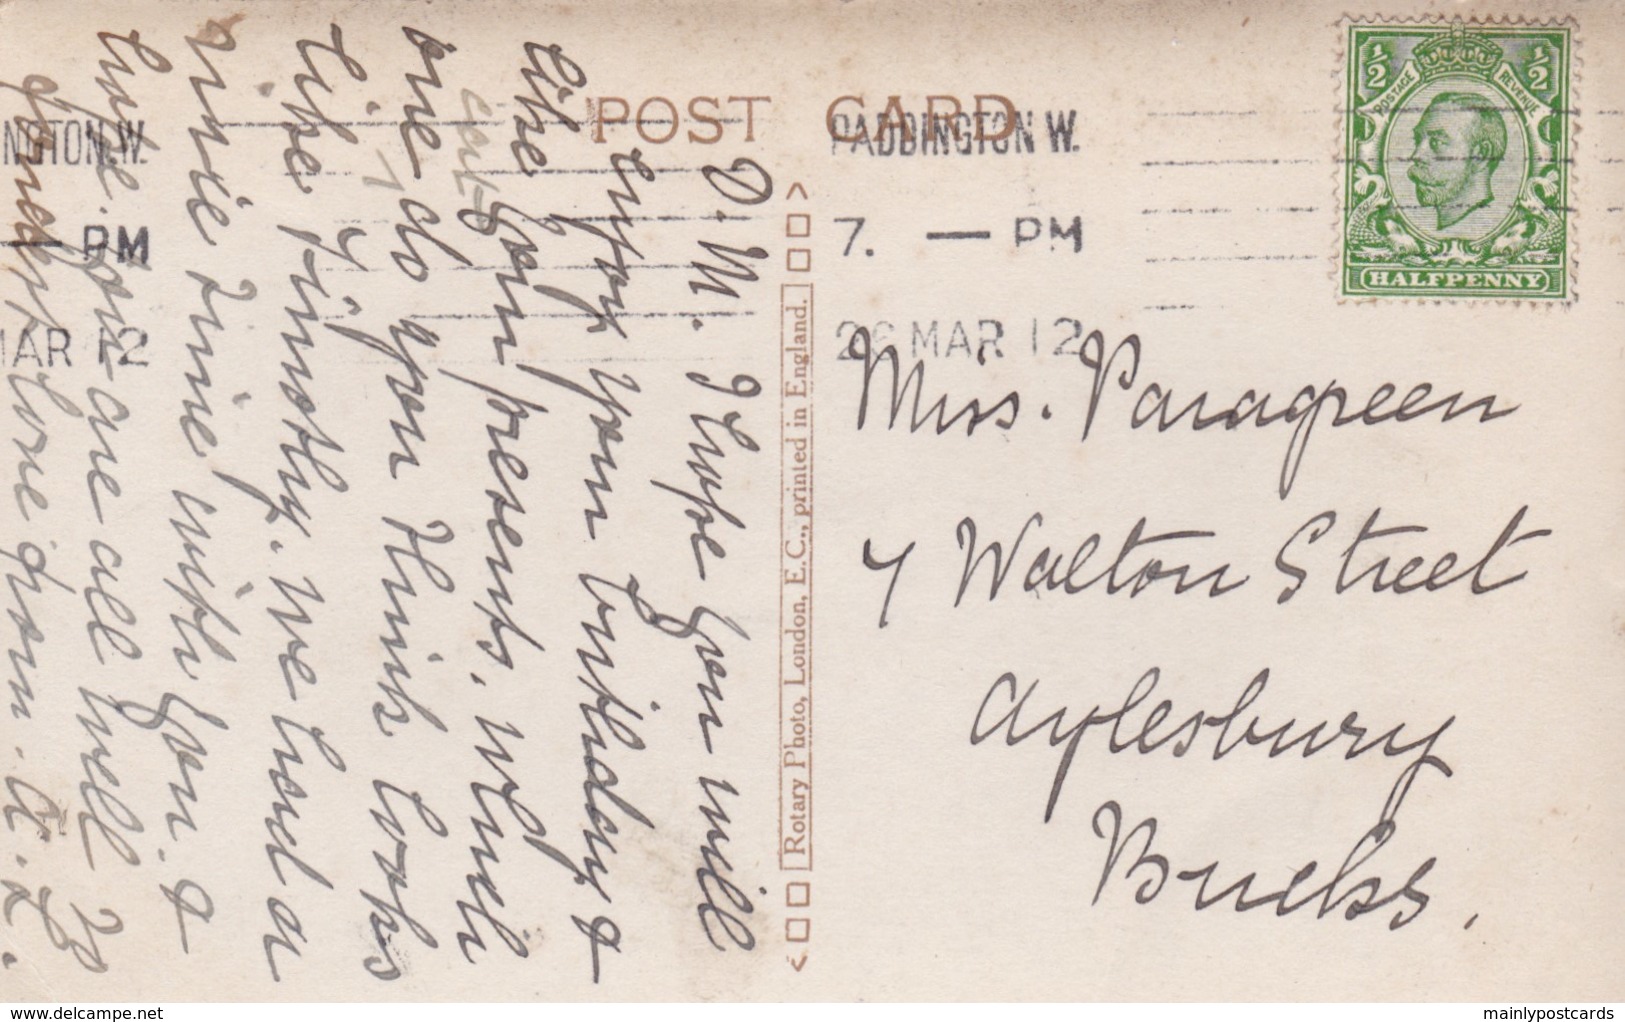 POST CARD
PADDINGTON W.
7. — PM
MAR 12
NGTON. W.
— PM
MAR 12
½ ½
POSTAGE REVENUE
HALFPENNY
D. M. I hope you will
enjoy your birthday &
like your presents. Which
cat
one do you think looks
like Timothy. We had a
nice time with you. &
hope you are all well
love from. A. L.
Rotary Photo, London, E.C., printed in England.
Miss. Paragreen
7 Walton Street
Aylesbury
Bucks.
mainlypostcards.ebid.net
mainlypostcards